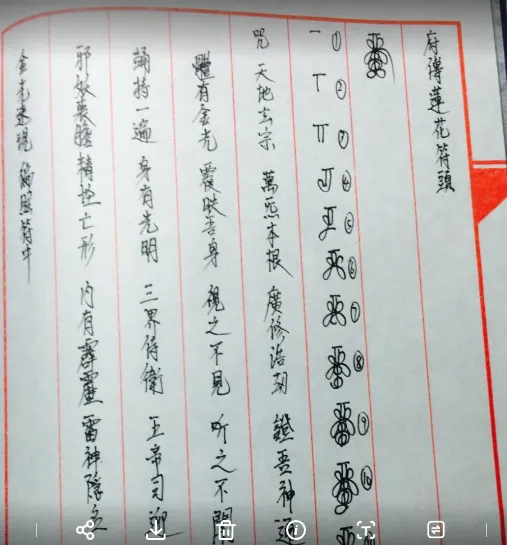 府傳蓮花符頭
① ② ③ ④ ⑤ ⑥ ⑦ ⑧ ⑨ ⑩
咒 天地玄宗 萬炁本根 廣修浩劫 證吾神通
體有金光 覆映吾身 視之不見 听之不聞
誦持一遍 身有光明 三界侍衛 五帝司迎
邪妖喪膽 精怪亡形 內有霹靂 雷神隱名
金光速現 符中